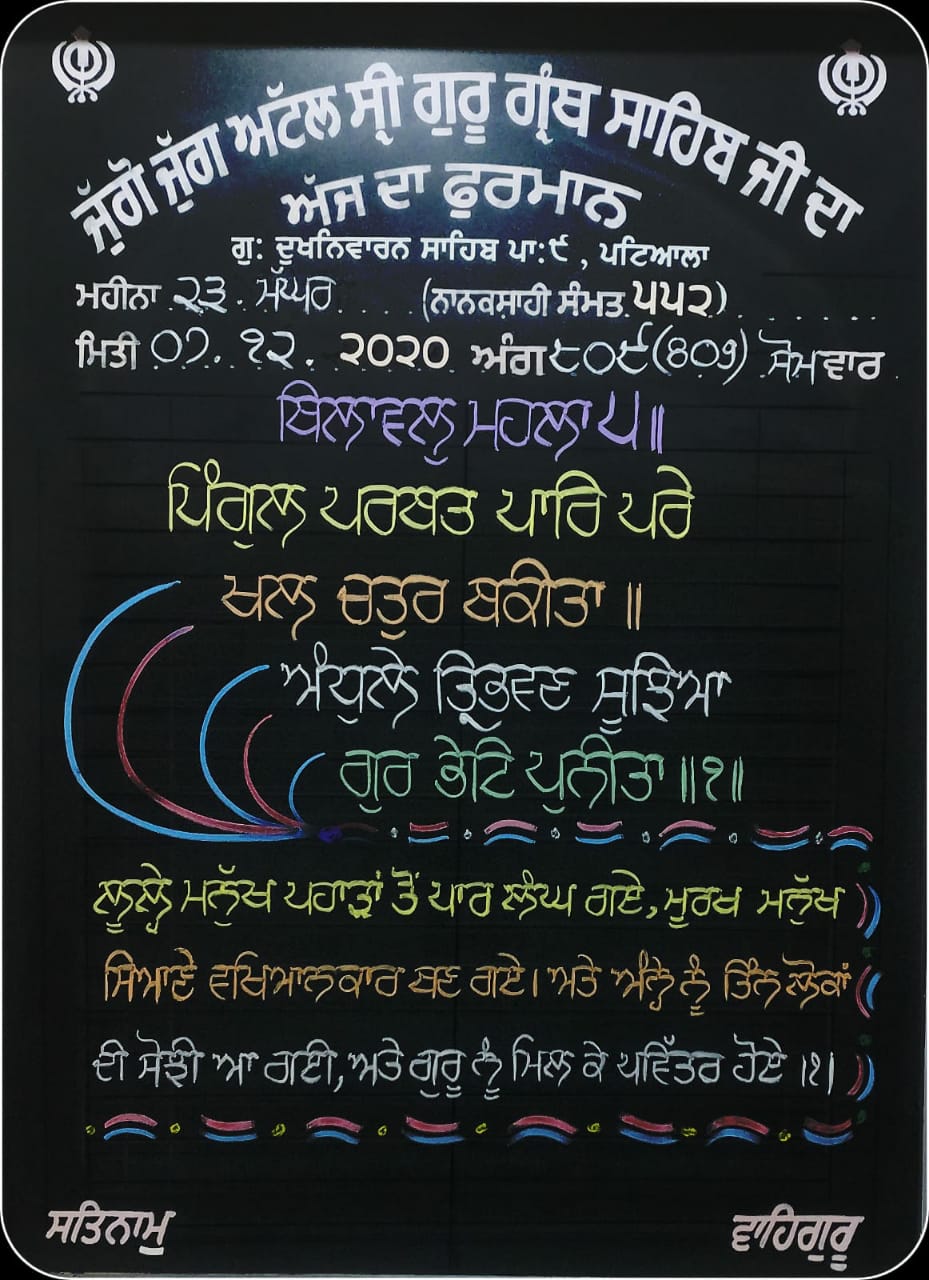 ਜੁੱਗੋ ਜੁੱਗ ਅਟੱਲ ਸ੍ਰੀ ਗੁਰੂ ਗ੍ਰੰਥ ਸਾਹਿਬ ਜੀ ਦਾ
ਅੱਜ ਦਾ ਫੁਰਮਾਨ
ਗੁ: ਦੁਖਨਿਵਾਰਨ ਸਾਹਿਬ ਪਾ:੯, ਪਟਿਆਲਾ
ਮਹੀਨਾ ੨੩. ਮੱਘਰ (ਨਾਨਕਸ਼ਾਹੀ ਸੰਮਤ ੫੫੨)
ਮਿਤੀ ੦੭. ੧੨. ੨੦੨੦ ਅੰਗ ੮੦੯ (809) ਸੋਮਵਾਰ
ਬਿਲਾਵਲੁ ਮਹਲਾ ੫॥
ਪਿੰਗੁਲ ਪਰਬਤ ਪਾਰਿ ਪਰੇ
ਖਲ ਚਤੁਰ ਬਕੀਤਾ ॥
ਅੰਧੁਲੇ ਤ੍ਰਿਭਵਣ ਸੂਝਿਆ
ਗੁਰ ਭੇਟਿ ਪੁਨੀਤਾ ॥੧॥
ਲੂਲ੍ਹੇ ਮਨੁੱਖ ਪਹਾੜਾਂ ਤੋਂ ਪਾਰ ਲੰਘ ਗਏ, ਮੂਰਖ ਮਨੁੱਖ
ਸਿਆਣੇ ਵਖਿਆਨਕਾਰ ਬਣ ਗਏ। ਅਤੇ ਅੰਨ੍ਹੇ ਨੂੰ ਤਿੰਨ ਲੋਕਾਂ
ਦੀ ਸੋਝੀ ਆ ਗਈ, ਅਤੇ ਗੁਰੂ ਨੂੰ ਮਿਲ ਕੇ ਪਵਿੱਤਰ ਹੋਏ ।੧।
ਸਤਿਨਾਮੁ ਵਾਹਿਗੁਰੂ